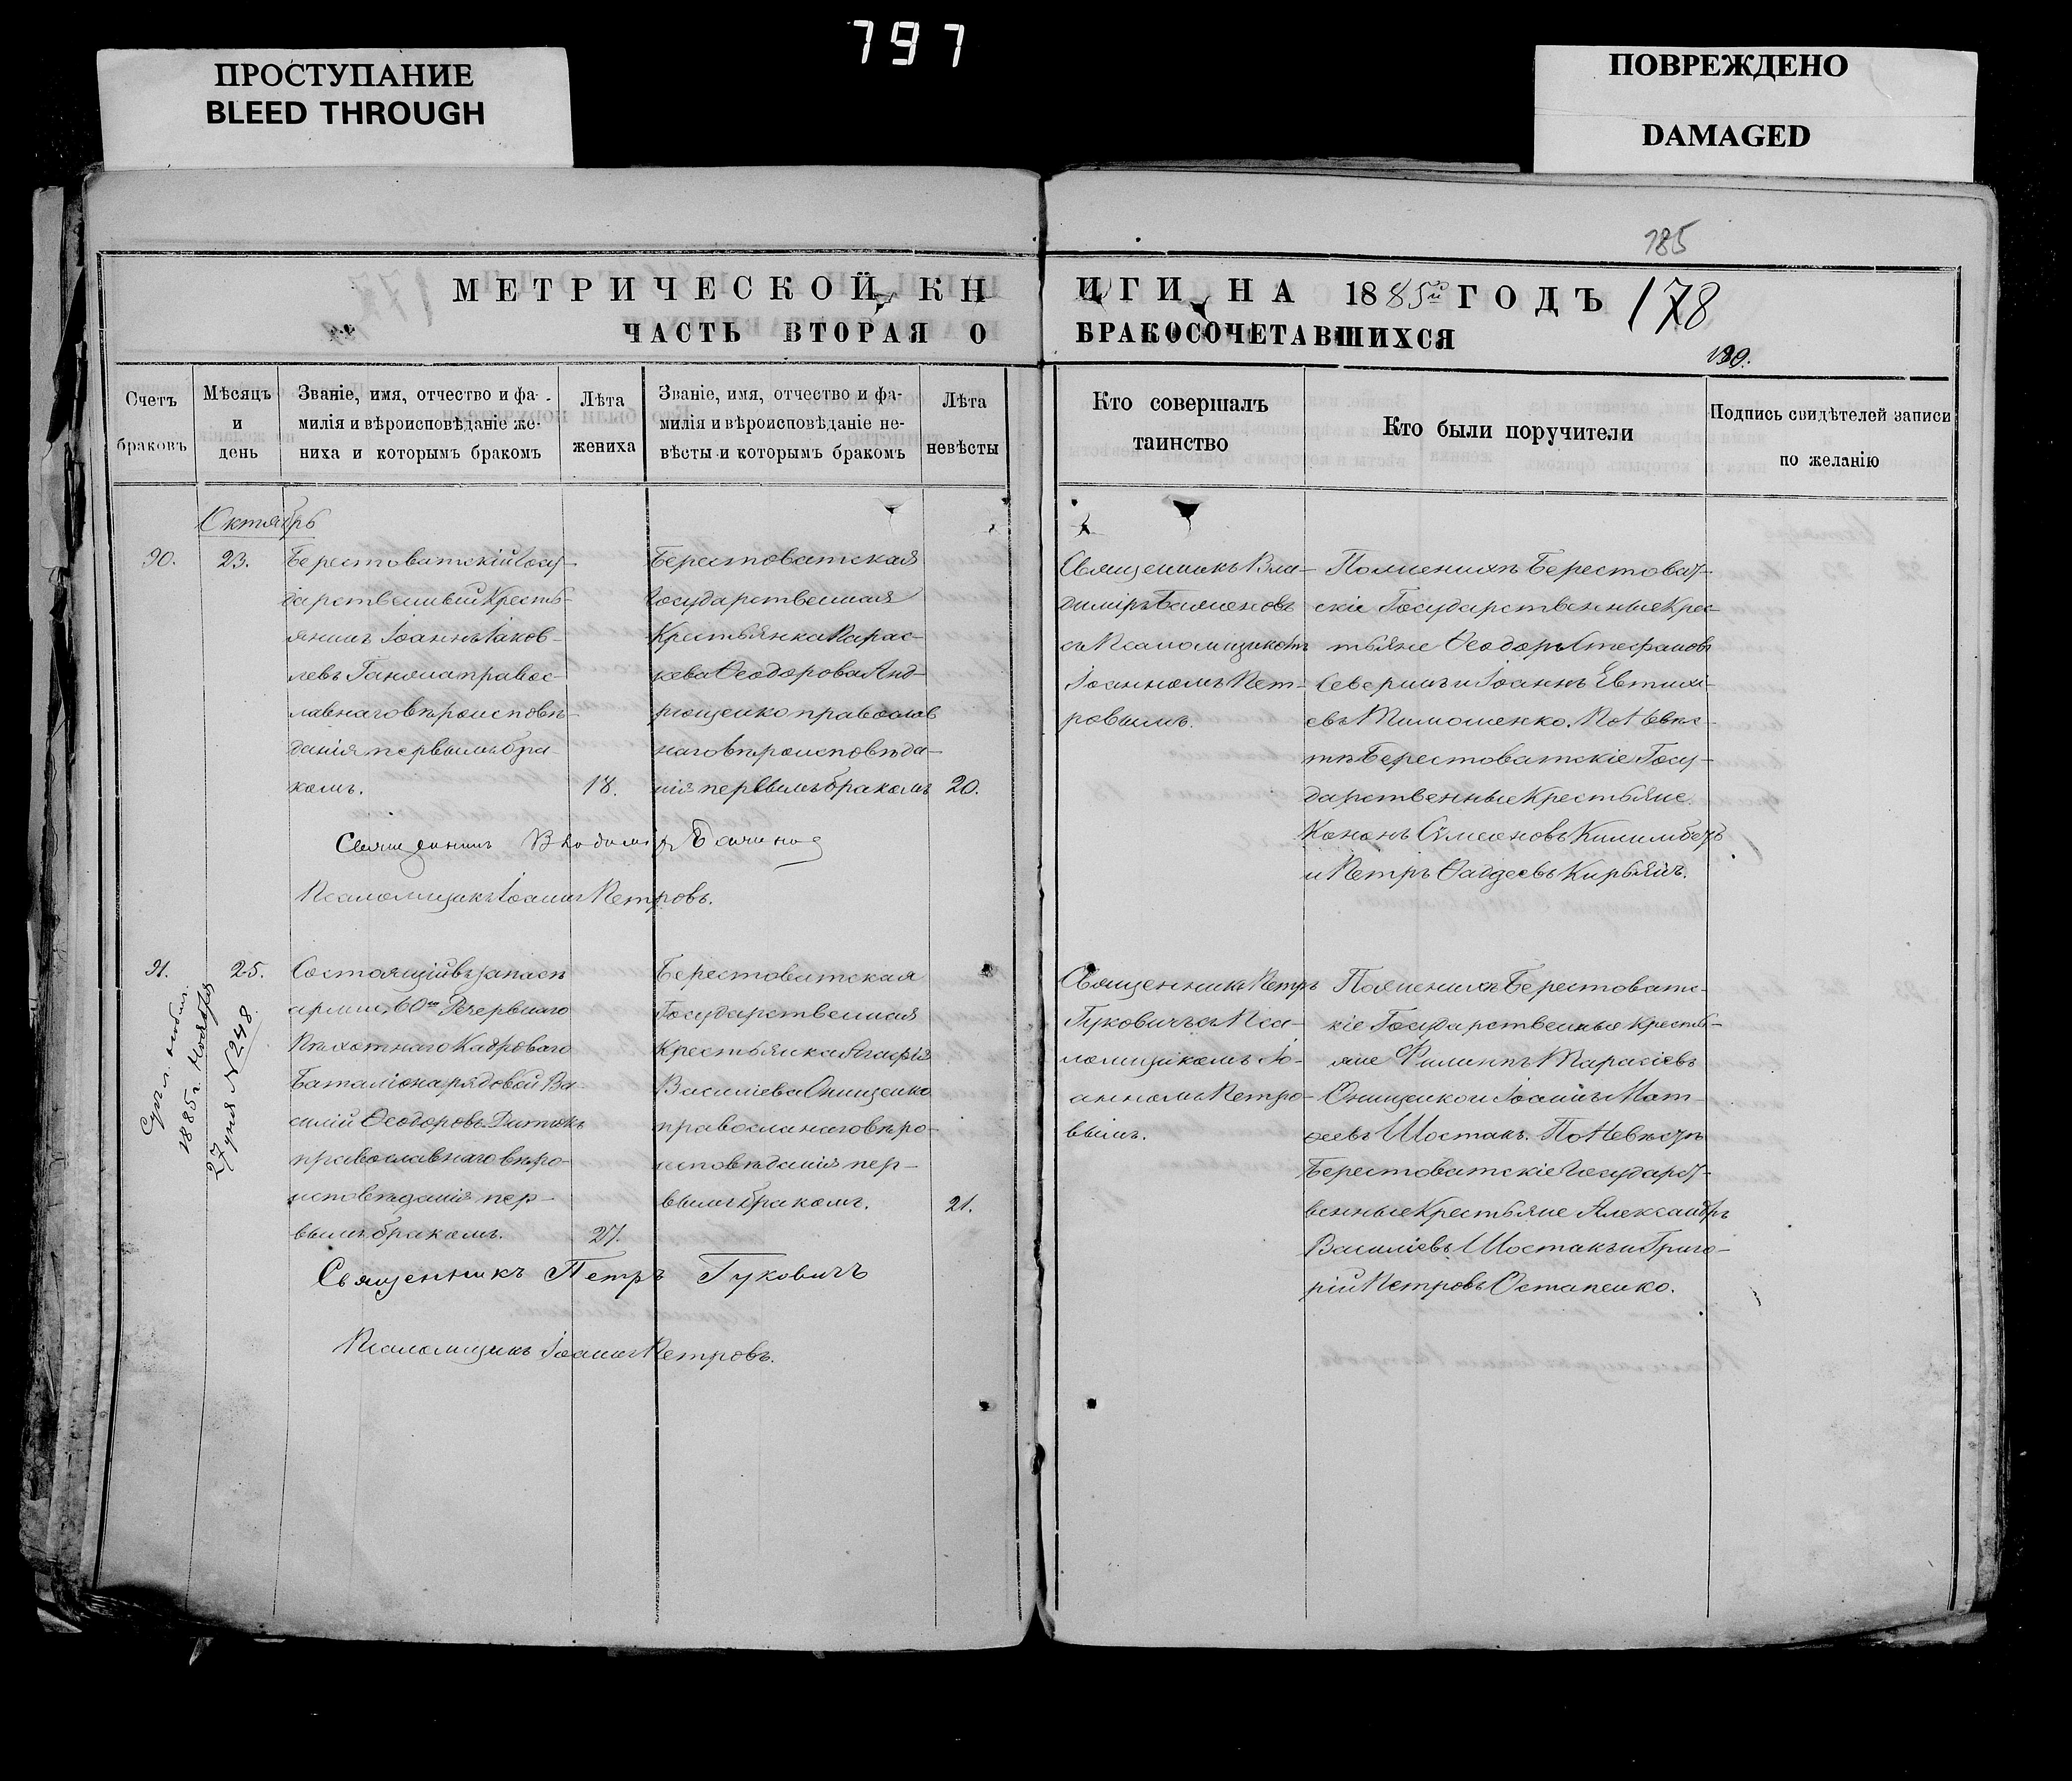 797
ПРОСТУПАНИЕ
BLEED THROUGH
ПОВРЕЖДЕНО
DAMAGED
185
МЕТРИЧЕСКОЙ КН
ЧАСТЬ ВТОРАЯ О
ИГИ НА 1885й ГОДЪ 178
БРАКОСОЧЕТАВШИХСЯ
Счетъ
браковъ
Мѣсяцъ
и
день
Званіе, имя, отчество и фа-
милія и вѣроисповѣданіе же-
ниха и которымъ бракомъ
Лѣта
жениха
Званіе, имя, отчество и фа-
милія и вѣроисповѣданіе не-
вѣсты и которымъ бракомъ
Лѣта
невѣсты
Кто совершалъ
таинство
Кто были поручители
Подпись свидѣтелей записи
по желанію
Октябрь
90.
23.
Берестоватскій Госу-
дарственный Кресть-
янинъ Іоаннъ Іаков-
левъ правос-
лавнаго вѣроисповѣ-
данія первымъ бра-
комъ.
18.
Берестоватская
Государственная
Крестьянка Парас-
кева Ѳеодорова Анд-
рющенко православ
наго вѣроисповѣда-
нія первымъ бракомъ
20.
Священникъ Вла-
диміръ
съ Псаломщикомъ
Іоанномъ Пет-
ровымъ.
По женихѣ Берестоват-
скіе Государственные Крес-
тьяне Ѳеодоръ Стефановъ
Северинъ и Іоаннъ Евтихі-
евъ Тимошенко. По Невѣс-
тѣ Берестоватскіе Госу-
дарственные Крестьяне
Кононъ Симеоновъ
и Петръ Ѳаддеевъ Кирьянъ.
Священникъ Владиміръ
Псаломщикъ Іоаннъ Петровъ.
91.
25.
1885 г. Ноября
27 дня № 248.
Состоящій въ запасѣ
арміи, 60го Резервнаго
Пѣхотнаго Кадроваго
Баталіона рядовой Ва-
силій Ѳеодоровъ
православнаго вѣро-
исповѣданія пер-
вымъ бракомъ.
27.
Берестоватская
Государственная
Крестьянка Агафія
Василіева Онищенко
православнаго вѣро-
исповѣданія пер-
вымъ бракомъ.
21.
Священникъ Петръ
Гуковичъ съ Пса-
ломщикомъ Іо-
анномъ Петро-
вымъ.
По женихѣ Берестоватс-
кіе Государственные Кресть-
яне Филиппъ Тарасіевъ
Онищенко и Іоаннъ Мат-
ѳеевъ Шостакъ. По Невѣстѣ
Берестоватскіе Государст-
венные Крестьяне Александръ
Василіевъ Шостакъ и Григо-
рій Петровъ Остапенко.
Священникъ Петръ Гуковичъ
Псаломщикъ Іоаннъ Петровъ.